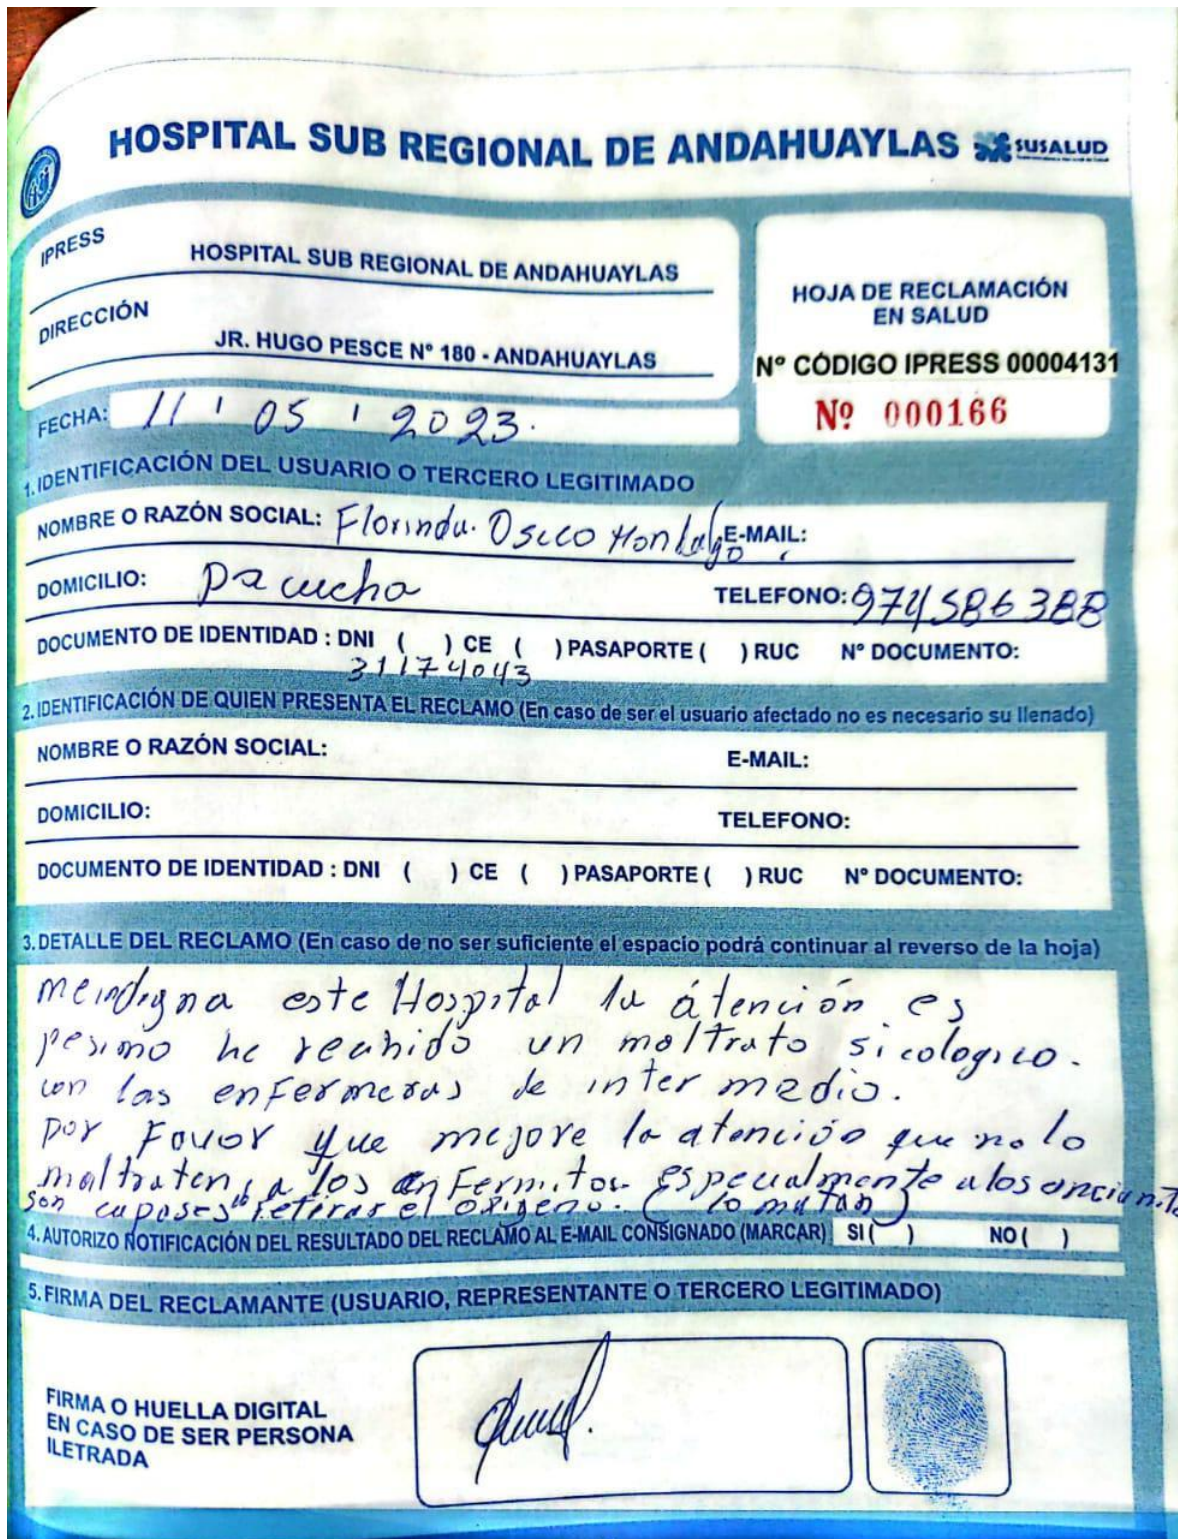 HOSPITAL SUB REGIONAL DE ANDAHUAYLAS SUSALUD
IPRESS HOSPITAL SUB REGIONAL DE ANDAHUAYLAS
DIRECCIÓN JR. HUGO PESCE Nº 180 - ANDAHUAYLAS
HOJA DE RECLAMACIÓN
EN SALUD
Nº CÓDIGO IPRESS 00004131
Nº 000166
FECHA: 11 / 05 / 2023.
1. IDENTIFICACIÓN DEL USUARIO O TERCERO LEGITIMADO
NOMBRE O RAZÓN SOCIAL: Florinda. Oscco E-MAIL:
DOMICILIO: Pacucha TELEFONO: 974586388
DOCUMENTO DE IDENTIDAD : DNI ( ) CE ( ) PASAPORTE ( ) RUC Nº DOCUMENTO:
31174043
2. IDENTIFICACIÓN DE QUIEN PRESENTA EL RECLAMO (En caso de ser el usuario afectado no es necesario su llenado)
NOMBRE O RAZÓN SOCIAL: E-MAIL:
DOMICILIO: TELEFONO:
DOCUMENTO DE IDENTIDAD : DNI ( ) CE ( ) PASAPORTE ( ) RUC Nº DOCUMENTO:
3. DETALLE DEL RECLAMO (En caso de no ser suficiente el espacio podrá continuar al reverso de la hoja)
meindigna este Hospital la átención es
pesimo he recibido un maltrato sicologico.
con las enfermeras de intermedio.
por Favor que mejore la atención que no lo
maltraten, a los enfermitos especialmente a los ancianito
son capases retirar el oxigeno. (lo matan)
4. AUTORIZO NOTIFICACIÓN DEL RESULTADO DEL RECLAMO AL E-MAIL CONSIGNADO (MARCAR) SI ( ) NO ( )
5. FIRMA DEL RECLAMANTE (USUARIO, REPRESENTANTE O TERCERO LEGITIMADO)
FIRMA O HUELLA DIGITAL
EN CASO DE SER PERSONA
ILETRADA